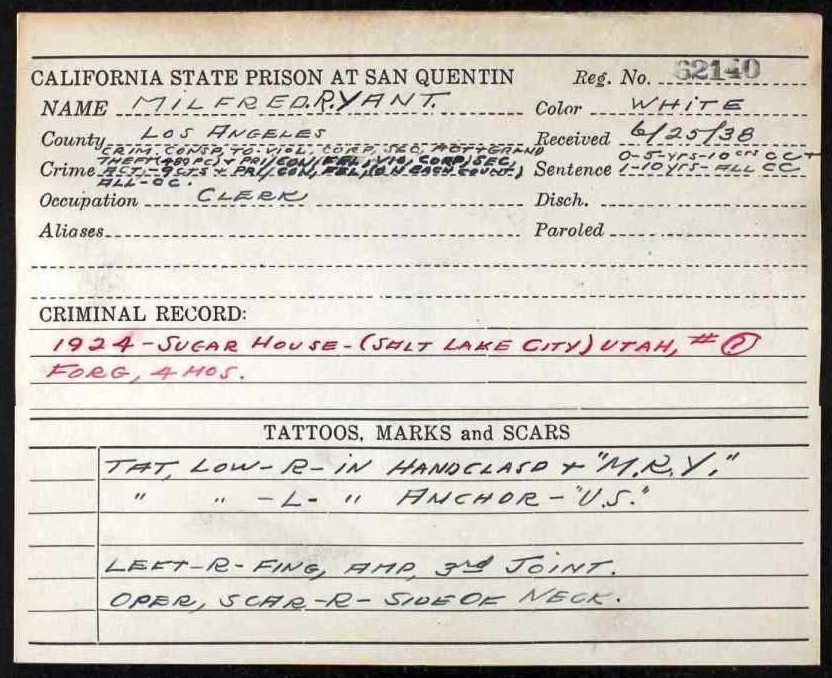 CALIFORNIA STATE PRISON AT SAN QUENTIN Reg. No. 62140
NAME MILFRED.R.YANT. Color WHITE
County LOS ANGELES Received 6/25/38
CRIM. CONSP. TO VIOL. CORP. SEC. ACT + GRAND
THEFT (489 PC) + PRI/CON/FEL, VIO, CORP/SEC, 0-5-YRS-10 CTS CC +
Crime ACT-9 CTS + PRI/CON, FEL, (ON EACH COUNT) Sentence 1-10 YRS-ALL CC
ALL-CC.
Occupation CLERK Disch.
Aliases Paroled
CRIMINAL RECORD:
1924-SUGAR HOUSE-(SALT LAKE CITY) UTAH, # ?
FORG, 4 MOS.
TATTOOS, MARKS and SCARS
TAT, LOW-R-IN HANDCLASP + "M.R.Y."
" " -L- " ANCHOR-"U.S."
LEFT-R-FING, AMP, 3rd JOINT.
OPER, SCAR-R-SIDE OF NECK.